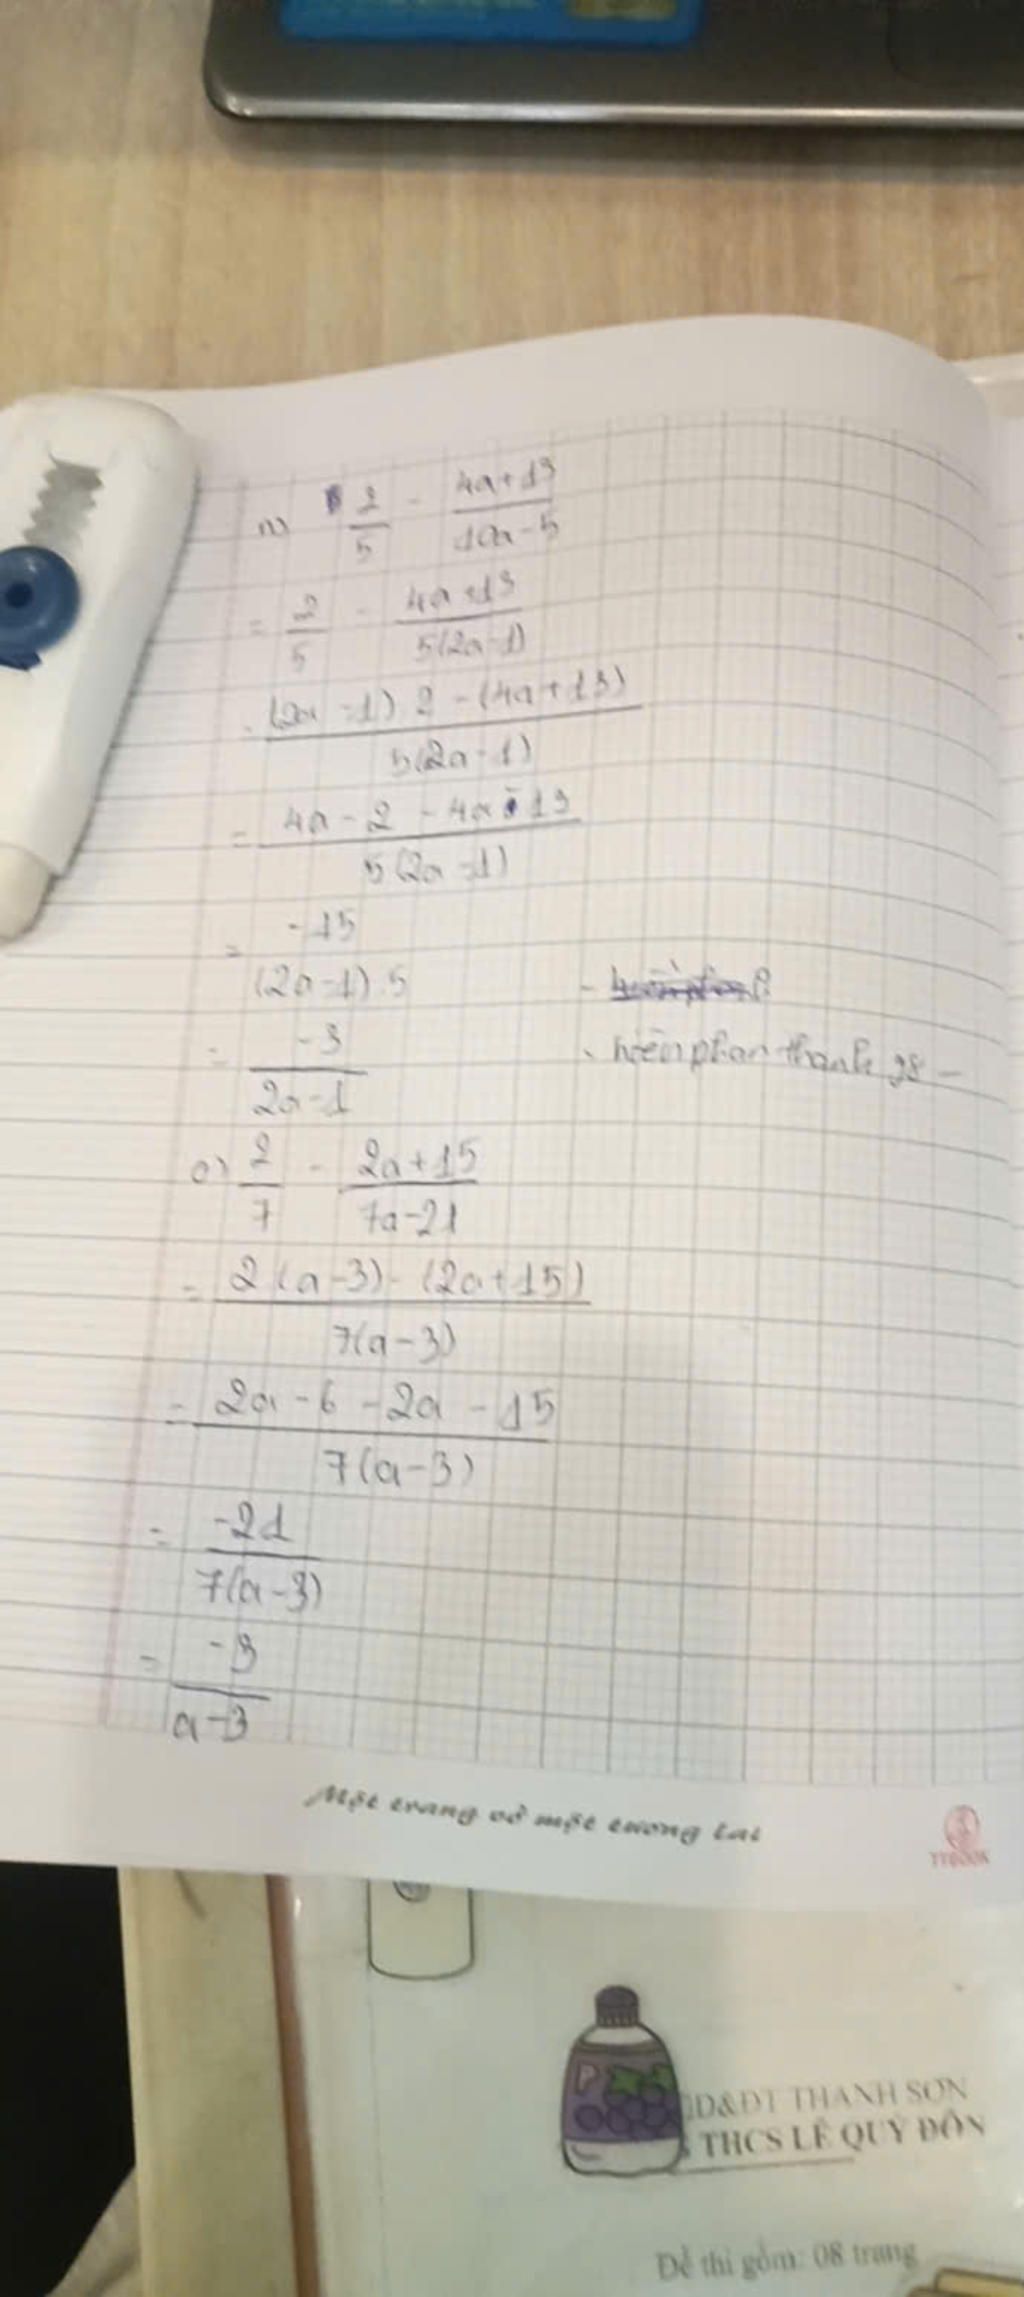 n) 2/5 - 4a+13/10a-5
= 2/5 - 4a+13/5(2a-1)
= (2a-1).2-(4a+13)/5(2a-1)
= 4a-2-4a-13/5(2a-1)
= -15/(2a-1).5
= -3/2a-1
o) 2/7 - 2a+15/7a-21
= 2(a-3)-(2a+15)/7(a-3)
= 2a-6-2a-15/7(a-3)
= -21/7(a-3)
= -3/a-3
Một trang vở một tương lai
TTBOOK
GD&ĐT THANH SƠN
THCS LÊ QUÝ ĐÔN
Đề thi gồm: 08 trang